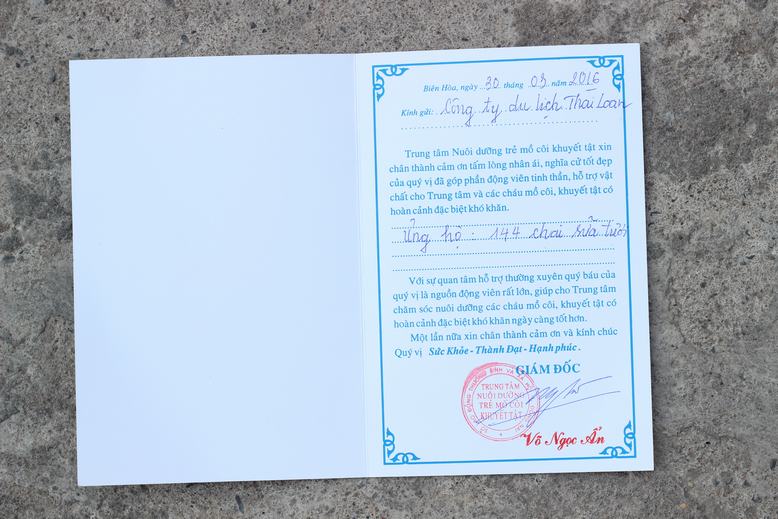 Biên Hòa, ngày 30 tháng 03 năm 2016
Kính gửi: Công ty du lịch Thái Loan
Trung tâm Nuôi dưỡng trẻ mồ côi khuyết tật xin
chân thành cảm ơn tấm lòng nhân ái, nghĩa cử tốt đẹp
của quý vị đã góp phần động viên tinh thần, hỗ trợ vật
chất cho Trung tâm và các cháu mồ côi, khuyết tật có
hoàn cảnh đặc biệt khó khăn.
Ủng hộ : 144 chai sữa tươi
Với sự quan tâm hỗ trợ thường xuyên quý báu của
quý vị là nguồn động viên rất lớn, giúp cho Trung tâm
chăm sóc nuôi dưỡng các cháu mồ côi, khuyết tật có
hoàn cảnh đặc biệt khó khăn ngày càng tốt hơn.
Một lần nữa xin chân thành cảm ơn và kính chúc
Quý vị Sức Khỏe - Thành Đạt - Hạnh phúc.
GIÁM ĐỐC
TRUNG TÂM
NUÔI DƯỠNG
TRẺ MỒ CÔI
KHUYẾT TẬT
Võ Ngọc Ẩn